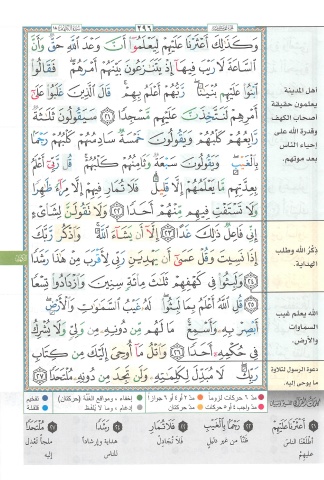 ٢٩٦
وَكَذَٰلِكَ أَعْثَرْنَا عَلَيْهِمْ لِيَعْلَمُوٓا۟ أَنَّ وَعْدَ ٱللَّهِ حَقٌّ وَأَنَّ
ٱلسَّاعَةَ لَا رَيْبَ فِيهَآ إِذْ يَتَنَٰزَعُونَ بَيْنَهُمْ أَمْرَهُمْ ۖ فَقَالُوا۟
ٱبْنُوا۟ عَلَيْهِم بُنْيَٰنًا ۖ رَّبُّهُمْ أَعْلَمُ بِهِمْ ۚ قَالَ ٱلَّذِينَ غَلَبُوا۟ عَلَىٰٓ
أَمْرِهِمْ لَنَتَّخِذَنَّ عَلَيْهِم مَّسْجِدًا ٢١ سَيَقُولُونَ ثَلَٰثَةٌ
رَّابِعُهُمْ كَلْبُهُمْ وَيَقُولُونَ خَمْسَةٌ سَادِسُهُمْ كَلْبُهُمْ رَجْمًۢا
بِٱلْغَيْبِ ۖ وَيَقُولُونَ سَبْعَةٌ وَثَامِنُهُمْ كَلْبُهُمْ ۚ قُل رَّبِّىٓ أَعْلَمُ
بِعِدَّتِهِم مَّا يَعْلَمُهُمْ إِلَّا قَلِيلٌ ۗ فَلَا تُمَارِ فِيهِمْ إِلَّا مِرَآءً ظَٰهِرًا
وَلَا تَسْتَفْتِ فِيهِم مِّنْهُمْ أَحَدًا ٢٢ وَلَا تَقُولَنَّ لِشَا۟ىْءٍ
إِنِّى فَاعِلٌ ذَٰلِكَ غَدًا ٢٣ إِلَّآ أَن يَشَآءَ ٱللَّهُ ۚ وَٱذْكُر رَّبَّكَ
إِذَا نَسِيتَ وَقُلْ عَسَىٰٓ أَن يَهْدِيَنِ رَبِّى لِأَقْرَبَ مِنْ هَٰذَا رَشَدًا
٢٤ وَلَبِثُوا۟ فِى كَهْفِهِمْ ثَلَٰثَ مِا۟ئَةٍ سِنِينَ وَٱزْدَادُوا۟ تِسْعًا
٢٥ قُلِ ٱللَّهُ أَعْلَمُ بِمَا لَبِثُوا۟ ۖ لَهُۥ غَيْبُ ٱلسَّمَٰوَٰتِ وَٱلْأَرْضِ ۖ
أَبْصِرْ بِهِۦ وَأَسْمِعْ ۚ مَا لَهُم مِّن دُونِهِۦ مِن وَلِىٍّ وَلَا يُشْرِكُ
فِى حُكْمِهِۦٓ أَحَدًا ٢٦ وَٱتْلُ مَآ أُوحِىَ إِلَيْكَ مِن كِتَابِ
رَبِّكَ ۖ لَا مُبَدِّلَ لِكَلِمَٰتِهِۦ وَلَن تَجِدَ مِن دُونِهِۦ مُلْتَحَدًا ٢٧
أهل المدينة
يعلمون حقيقة
أصحاب الكهف
وقدرة الله على
إحياء الناس
بعد موتهم.
ذِكْر الله وطلب
الهداية.
الله يعلم غيب
السماوات
والأرض.
دعوة الرسول لتلاوة
ما يوحى إليه.
مدّ ٦ حركات لزوماً
مدّ ٢ أو ٤ أو ٦ جوازاً
إخفاء، ومواقع الغُنَّة (حركتان)
تفخيم
مدّ واجب ٤ أو ٥ حركات
مدّ حركتان
إدغام، وما لا يُلفظ
قلقلة
٢١ أَعْثَرْنَا عَلَيْهِمْ
أطلعنا الناس
عليهم
٢٢ رَجْمًا بِالْغَيْبِ
ظنّاً من غير دليل
٢٢ فَلَا تُمَارِ
فلا تجادل
٢٤ رَشَدًا
هداية وإرشاداً
للناس
٢٧ مُلْتَحَدًا
ملجأ تعدل
إليه